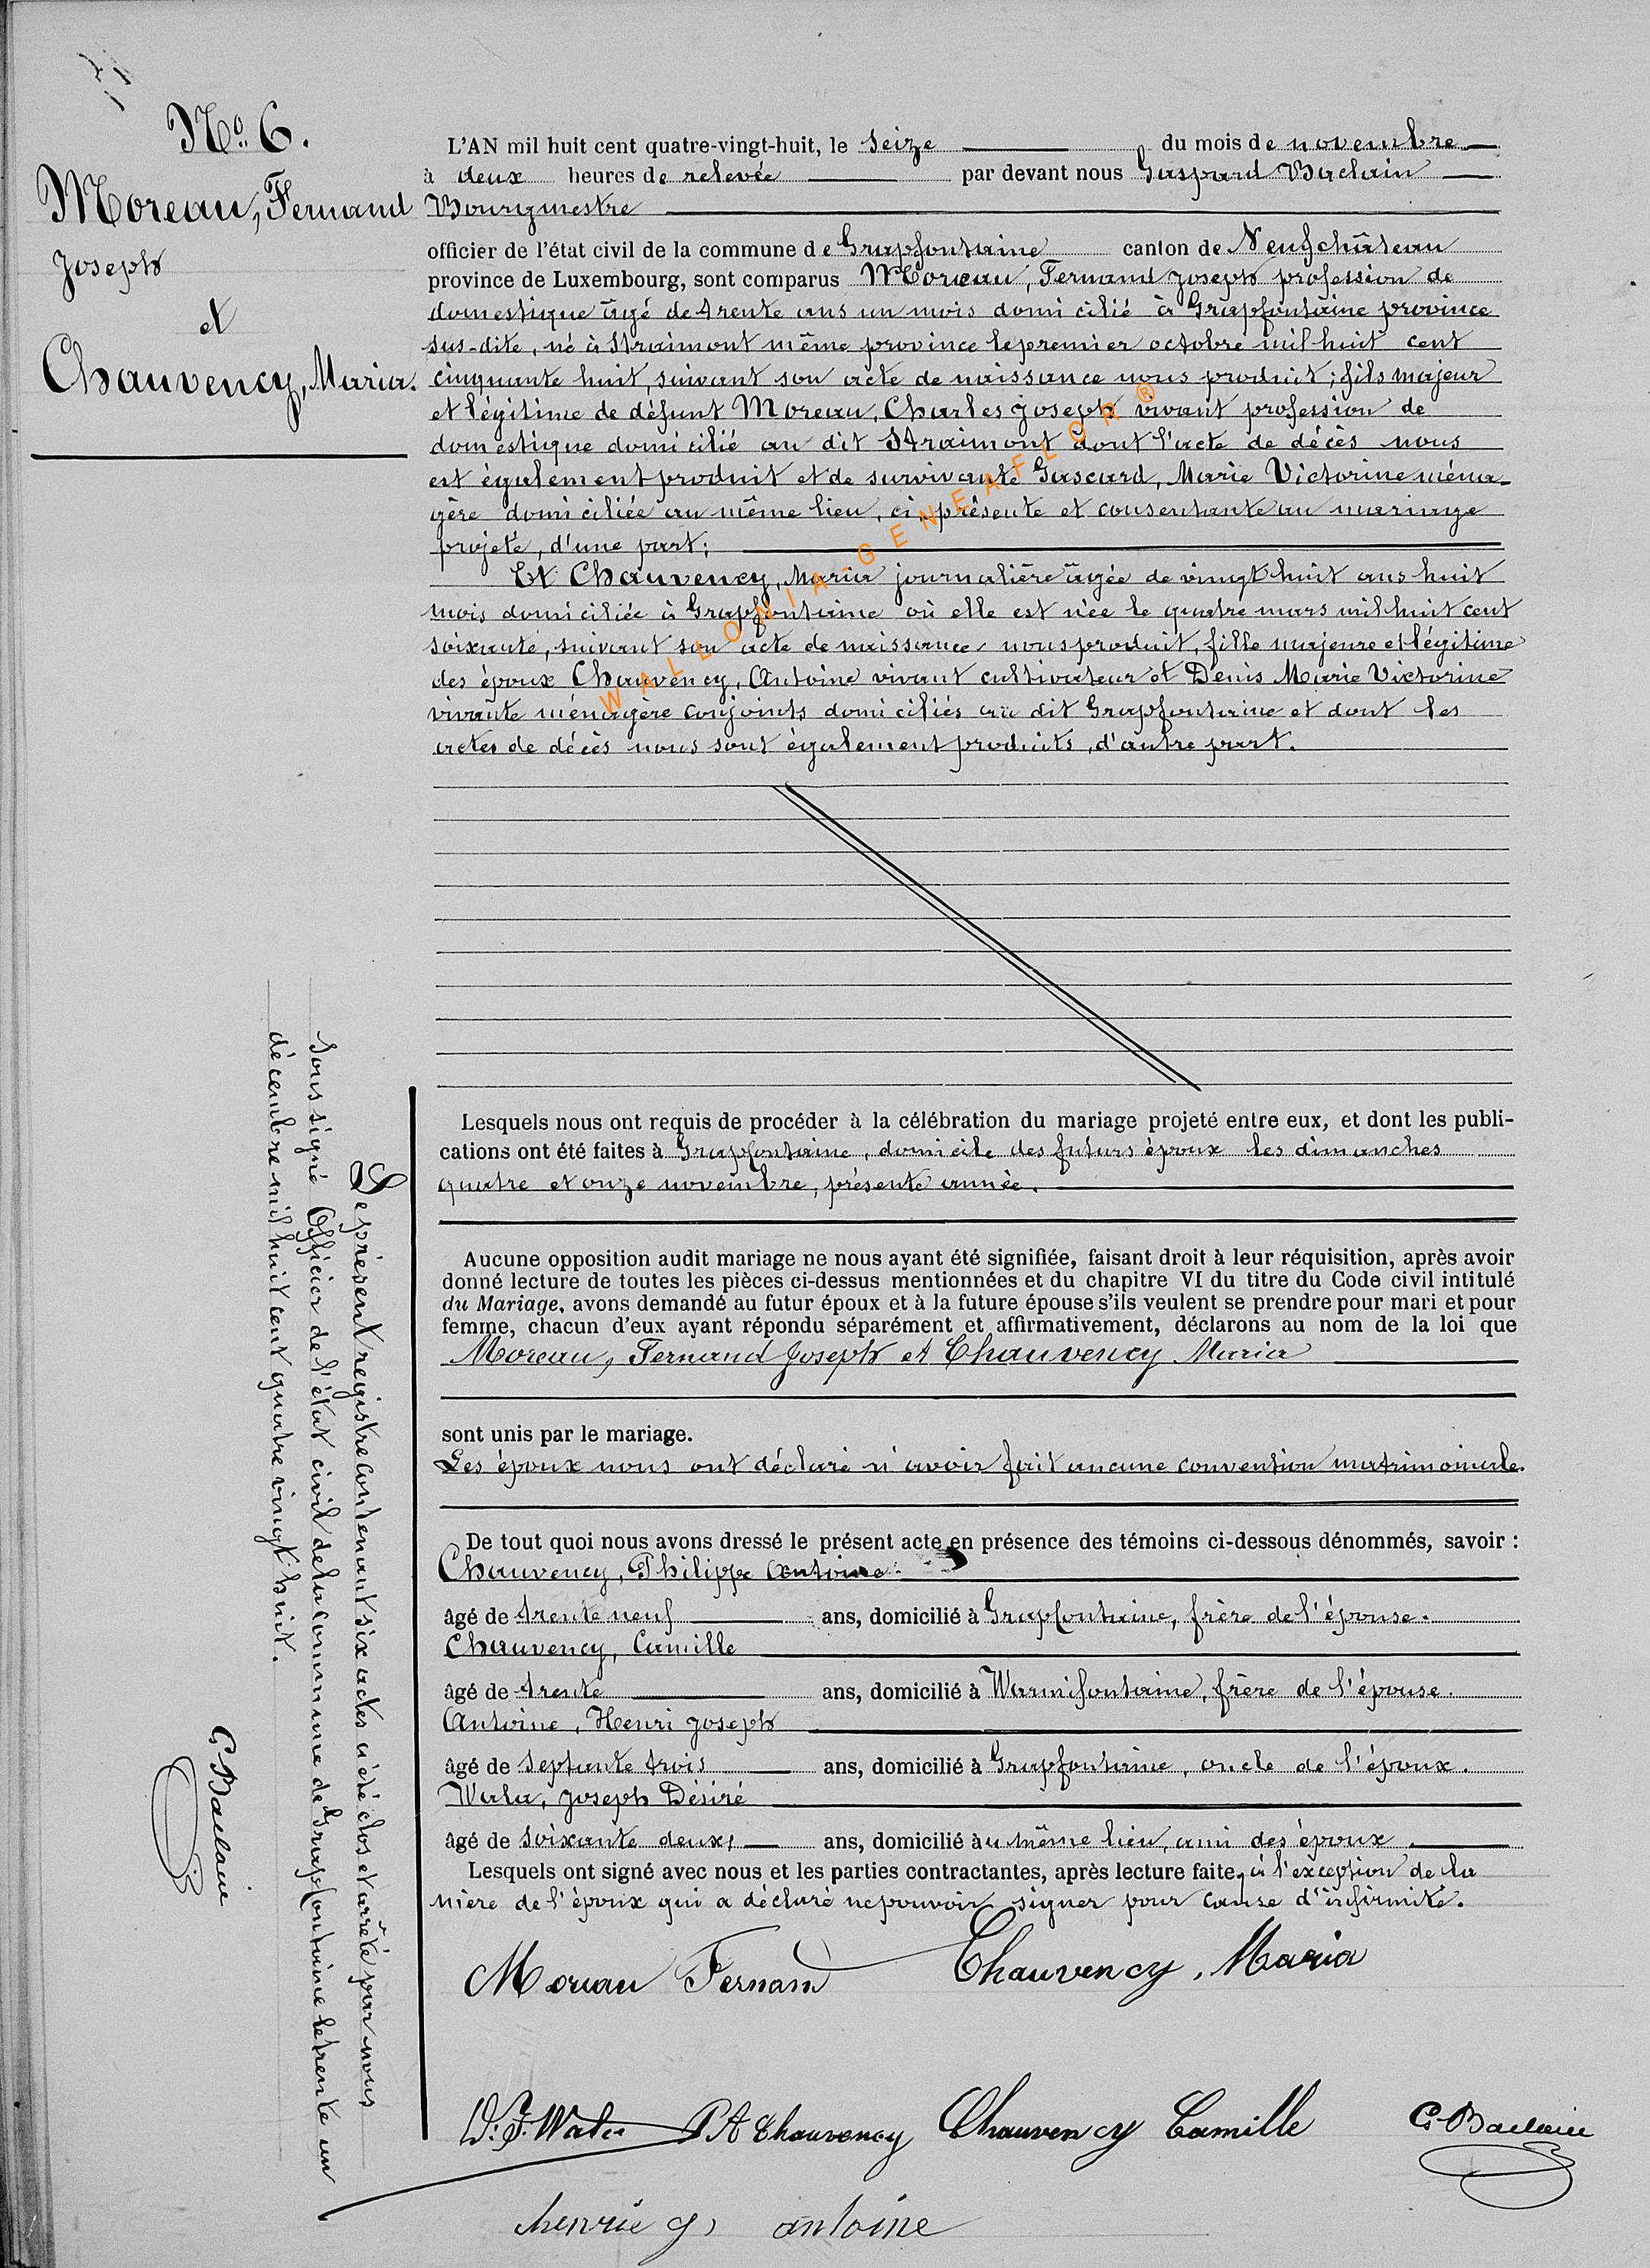 No. 6.
Moreau, Fernand
Joseph
et
Chauvency, Maria.
L'AN mil huit cent quatre-vingt-huit, le Seize du mois de novembre
à deux heures de relevée par devant nous Gaspard Baclain
Bourgmestre
officier de l'état civil de la commune de Grapfontaine canton de Neufchâteau
province de Luxembourg, sont comparus Moreau, Fernand Joseph profession de
domestique âgé de trente ans un mois domicilié à Grapfontaine province
sus-dite, né à Straimont même province le premier octobre mil huit cent
cinquante huit, suivant son acte de naissance nous produit; fils majeur
et légitime de défunt Moreau, Charles Joseph vivant profession de
domestique domicilié au dit Straimont dont l'acte de décès nous
est également produit et de survivante Gascard, Marie Victorine ména-
gère domiciliée au même lieu, ci-présente et consentante au mariage
projeté, d'une part;
Et Chauvency, Maria journalière âgée de vingt huit ans huit
mois domiciliée à Grapfontaine où elle est née le quatre mars mil huit cent
soixante, suivant son acte de naissance nous produit, fille majeure et légitime
des époux Chauvency, Antoine vivant cultivateur et Denis Marie Victorine
vivante ménagère conjoints domiciliés au dit Grapfontaine et dont les
actes de décès nous sont également produits, d'autre part.
WALLONIA-GENEAFLOR®
Lesquels nous ont requis de procéder à la célébration du mariage projeté entre eux, et dont les publi-
cations ont été faites à Grapfontaine, domicile des futurs époux les dimanches
quatre et onze novembre, présente année.
Aucune opposition audit mariage ne nous ayant été signifiée, faisant droit à leur réquisition, après avoir
donné lecture de toutes les pièces ci-dessus mentionnées et du chapitre VI du titre du Code civil intitulé
du Mariage, avons demandé au futur époux et à la future épouse s'ils veulent se prendre pour mari et pour
femme, chacun d'eux ayant répondu séparément et affirmativement, déclarons au nom de la loi que
Moreau, Fernand Joseph et Chauvency Maria
sont unis par le mariage.
Les époux nous ont déclaré n'avoir fait aucune convention matrimoniale.
De tout quoi nous avons dressé le présent acte en présence des témoins ci-dessous dénommés, savoir :
Chauvency, Philippe Antoine
âgé de trente neuf ans, domicilié à Grapfontaine, frère de l'épouse.
Chauvency, Camille
âgé de trente ans, domicilié à Warmifontaine, frère de l'épouse.
Antoine, Henri Joseph
âgé de septante trois ans, domicilié à Grapfontaine, oncle de l'époux.
Wala, Joseph Désiré
âgé de soixante deux, ans, domicilié au même lieu, ami des époux.
Lesquels ont signé avec nous et les parties contractantes, après lecture faite, à l'exception de la
mère de l'époux qui a déclaré ne pouvoir signer pour cause d'infirmité.
Moreau Fernand Chauvency, Maria
D. J. Wala P A Chauvency Chauvency Camille G. Baclain
henrie j antoine
Le présent registre contenant six actes a été clos et arrêté par nous
soussigné Officier de l'état civil de la commune de Grapfontaine le trente un
décembre mil huit cent quatre vingt huit.
G. Baclain